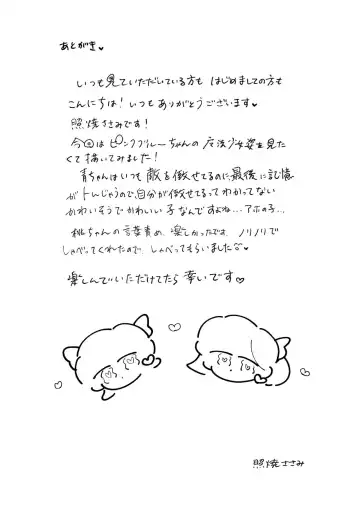 あとがき♥
いつも見ていただいている方も はじめましての方も
こんにちは!いつもありがとうございます♥
照焼ささみです!
今回はピンクブルーちゃんの魔法少女姿を見た
くて描いてみました!
青ちゃんはいつも敵を倒せてるのに最後に記憶
がトんじゃうので、自分が倒せてるってわかってない
かわいそうでかわいい子なんですよね…アホの子…
桃ちゃんの言葉責め、楽しかったです。ノリノリで
しゃべってくれたので、しゃべってもらいました
楽しんでいただけてたら幸いです♥
照焼ささみ